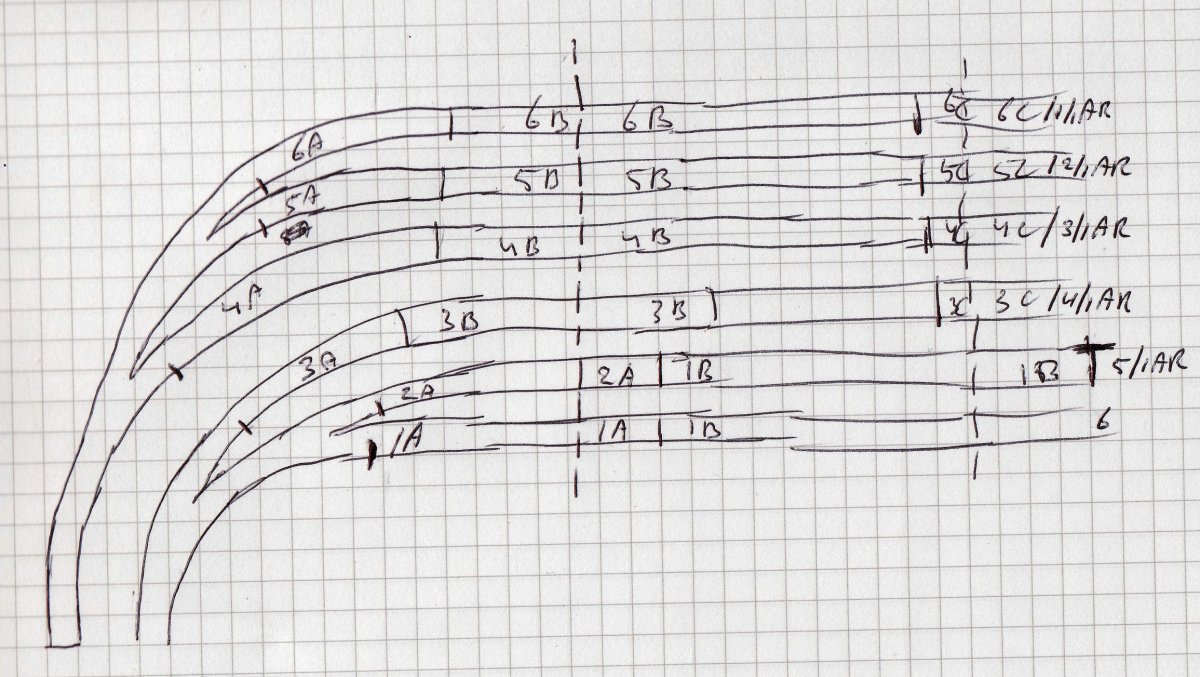 6A 6B 6B 6C 6C/1/1AR
5A 5B 5B 5C 5C/2/1AR
4A 4B 4B 4C 4C/3/1AR
3A 3B 3B 3C 3C/4/1AR
2A 2A 1B 1B 5/1AR
1A 1A 1B 6